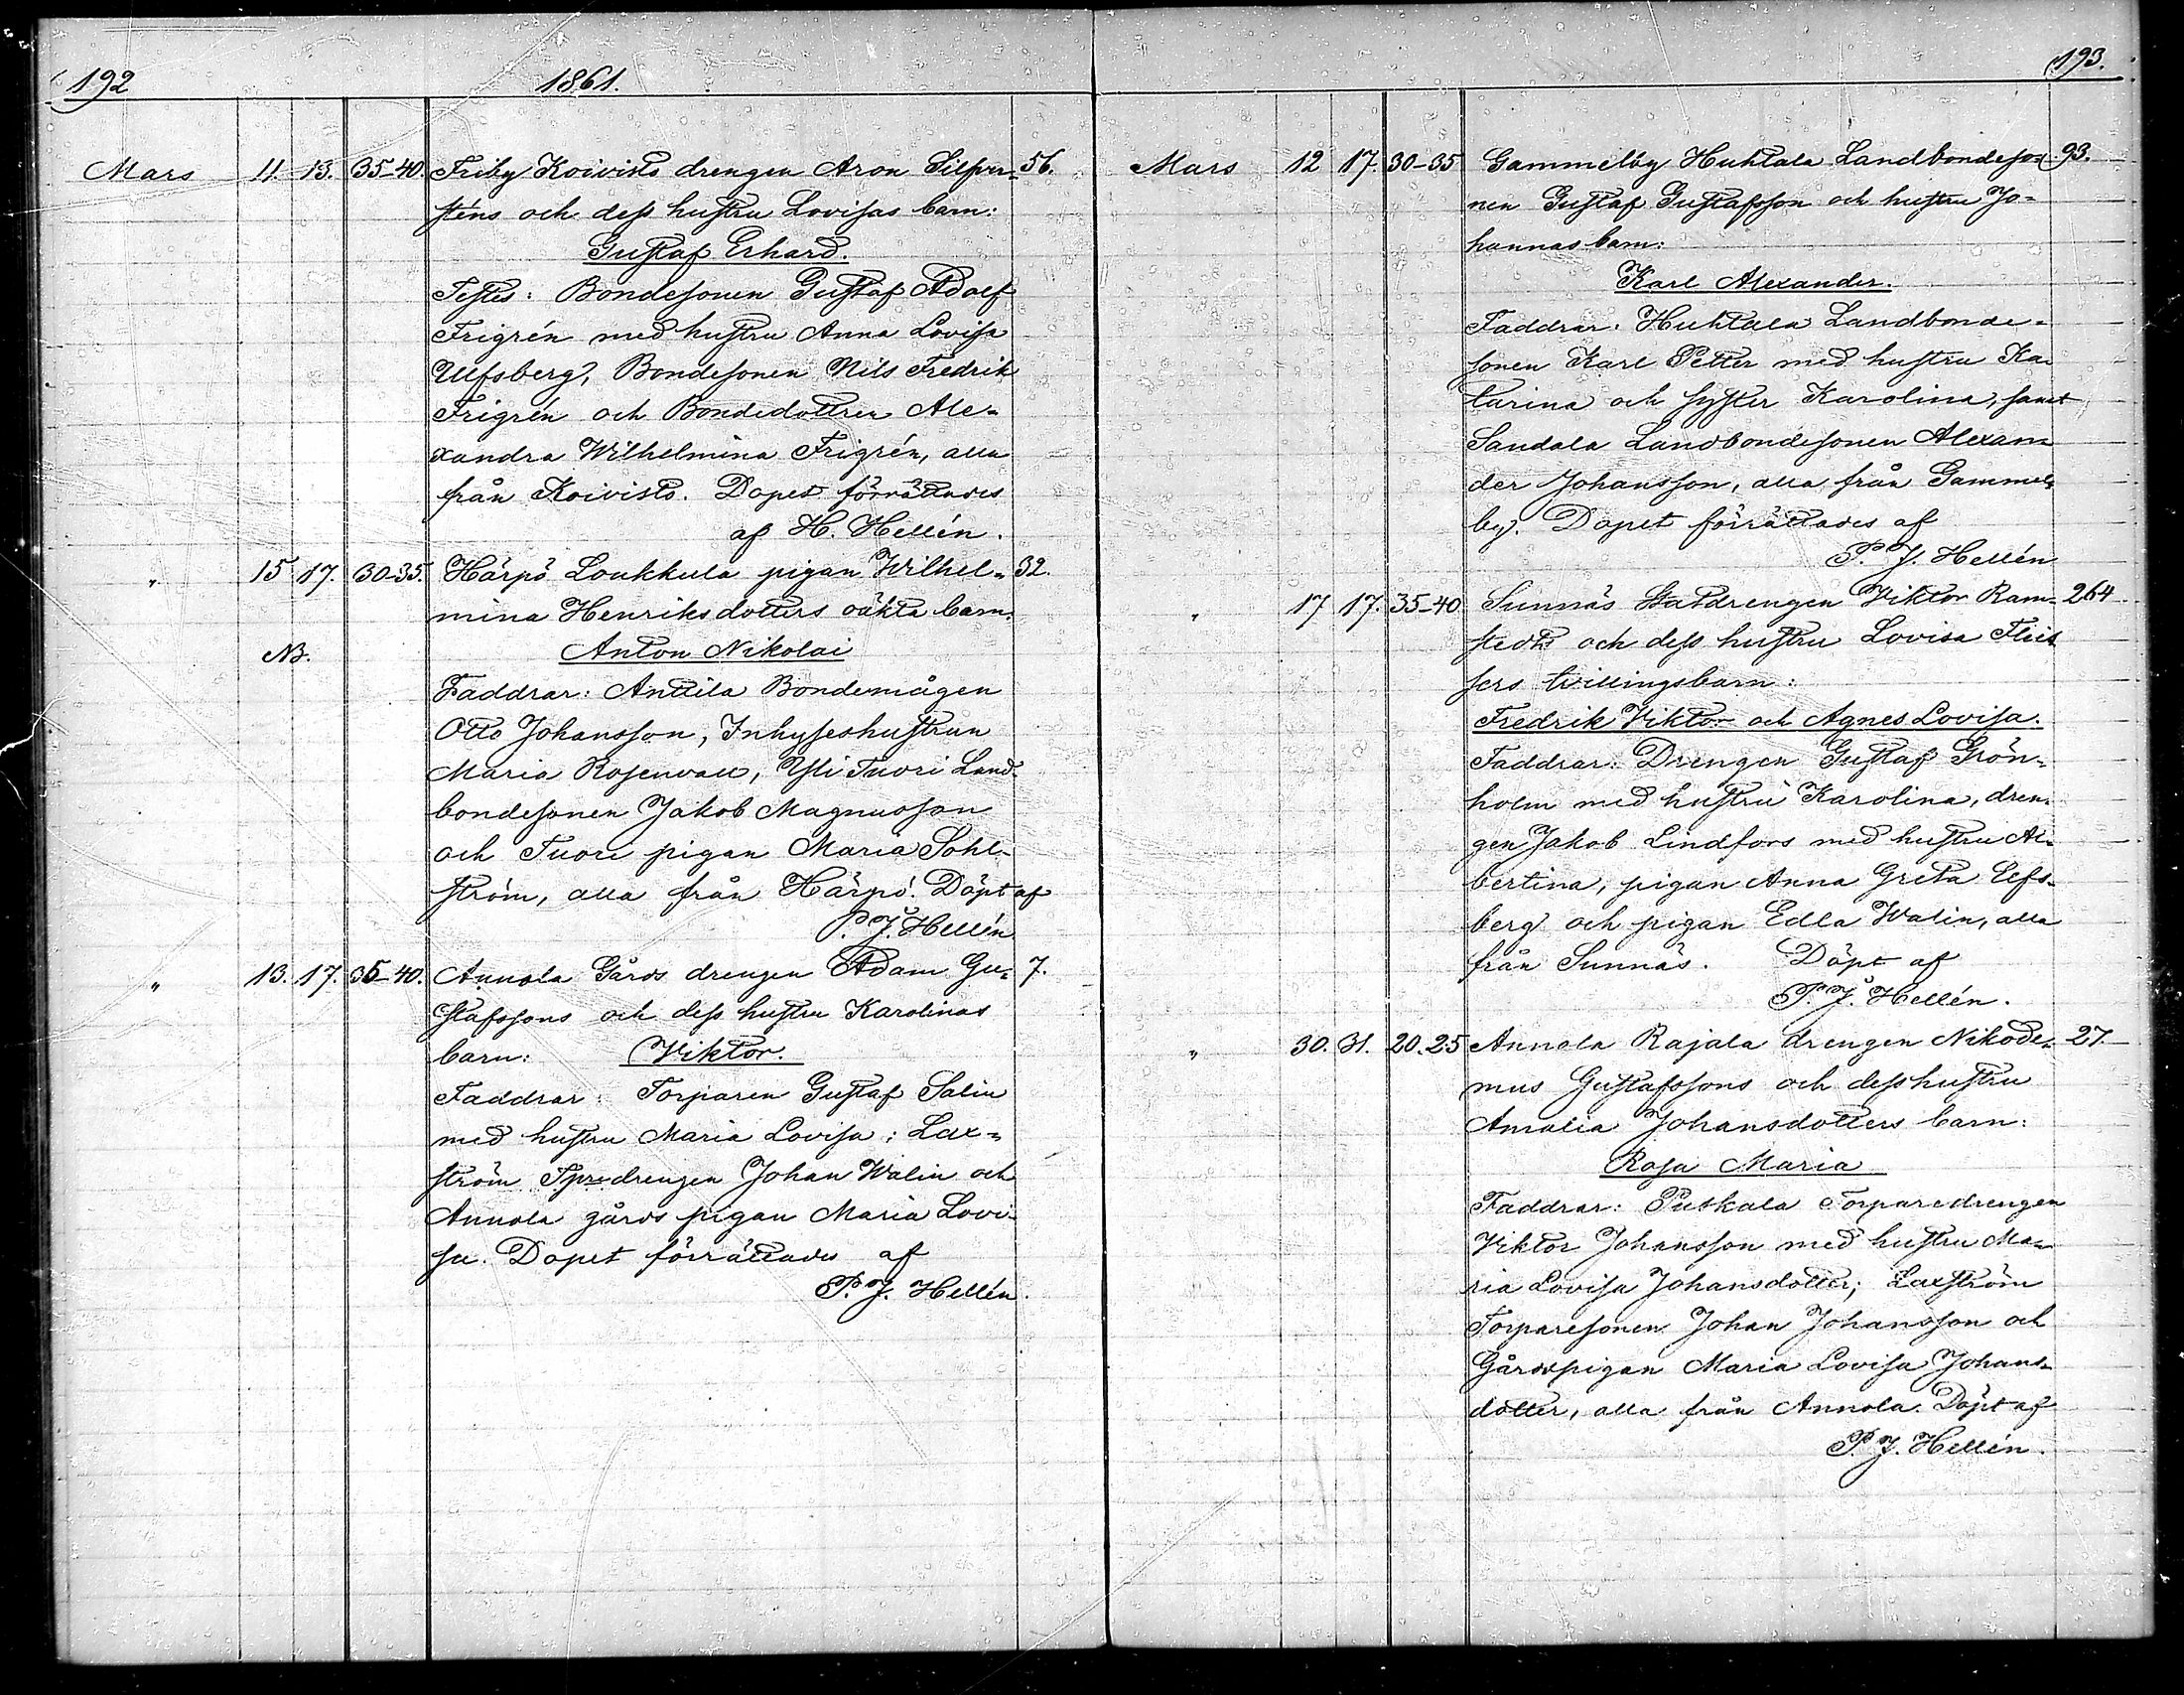 192
1861.
Mars 11. 13. 35-40. Friby Koivisto drengen Aron Silfver- 56.
sténs och dess hustru Lovisas barn:
Gustaf Erhard.
Testes: Bondesonen Gustaf Adolf
Frigrén med hustru Anna Lovisa
Ulfsberg, Bondesonen Nils Fredrik
Frigrén och Bondedottren Ale-
xandra Wilhelmina Frigrén, alla
från Koivisto. Dopet förrättades
af H. Hellén.
" 15 17. 30-35. Härpö Loukkula pigan Wilhel- 32.
mina Henriksdotters oäkta barn.
NB. Anton Nikolai
Faddrar: Anttila Bondemågen
Otto Johansson, Inhyseshustrun
Maria Rosenvall, Yli Tuori Land-
bondesonen Jakob Magnusson
och Tuori pigan Maria Sohl-
ström, alla från Härpö. Döpt af
P. J. Hellén
" 13. 17. 35-40. Annola Gårds drengen Adam Gu- 7.
stafssons och dess hustru Karolinas
barn: Viktor.
Faddrar: Torparen Gustaf Salin
med hustru Maria Lovisa; Lax-
ström Tpredrengen Johan Walin och
Annola gårds pigan Maria Lovi-
sa. Dopet förrättades af
P. J. Hellén.
193.
Mars 12 17. 30-35 Gammelby Huhtala Landbondeso- 93.
nen Gustaf Gustafsson och hustru Jo-
hannas barn:
Karl Alexander.
Faddrar: Huhtala Landbonde-
sonen Karl Petter med hustru Ka-
tarina och syster Karolina, samt
Sandala Landbondesonen Alexan-
der Johansson, alla från Gammel-
by. Dopet förrättades af
P. J. Hellén
" 17 17. 35-40. Sunnäs Statdrengen Viktor Ram- 264
stedt och dess hustru Lovisa Fleis
sers tvillingsbarn:
Fredrik Viktor och Agnes Lovisa.
Faddrar: Drengen Gustaf Grön-
holm med hustru Karolina, dren-
gen Jakob Lindfors med hustru Al-
bertina, pigan Anna Greta Elfs-
berg och pigan Edla Walin, alla
från Sunnäs. Döpt af
P. J. Hellén.
" 30. 31. 20.25 Annola Rajala drengen Nikode- 27.
mus Gustafssons och dess hustru
Amalia Johansdotters barn:
Rosa Maria
Faddrar: Puskala Torparedrengen
Viktor Johansson med hustru Ma-
ria Lovisa Johansdotter; Laxström
Torparesonen Johan Johansson och
Gårdspigan Maria Lovisa Johans-
dotter, alla från Annola. Döpt af
P. J. Hellén.